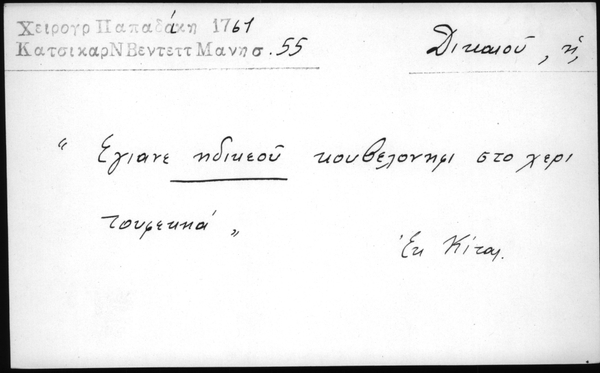 Χειρογρ Παπαδάκη 1761
ΚατσικαρΝΒεντεττΜανησ.55
Δικαιοῦ, ἡ,
" Εγιανε ηδικεοῦ κουβελονημι στο χερι
τουφεκιά "
Ἐκ Κίταρ.